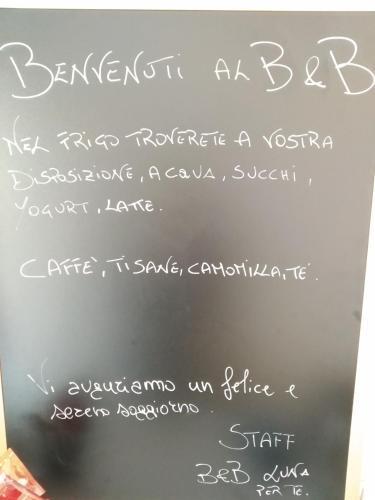 BENVENUTI AL B&B
NEL FRIGO TROVERETE A VOSTRA
DISPOSIZIONE, ACQUA, SUCCHI,
YOGURT, LATTE.
CAFFE', TISANE, CAMOMILLA, TE'.
Vi auguriamo un felice e
sereno soggiorno.
STAFF
B&B LUNA
PER TE.